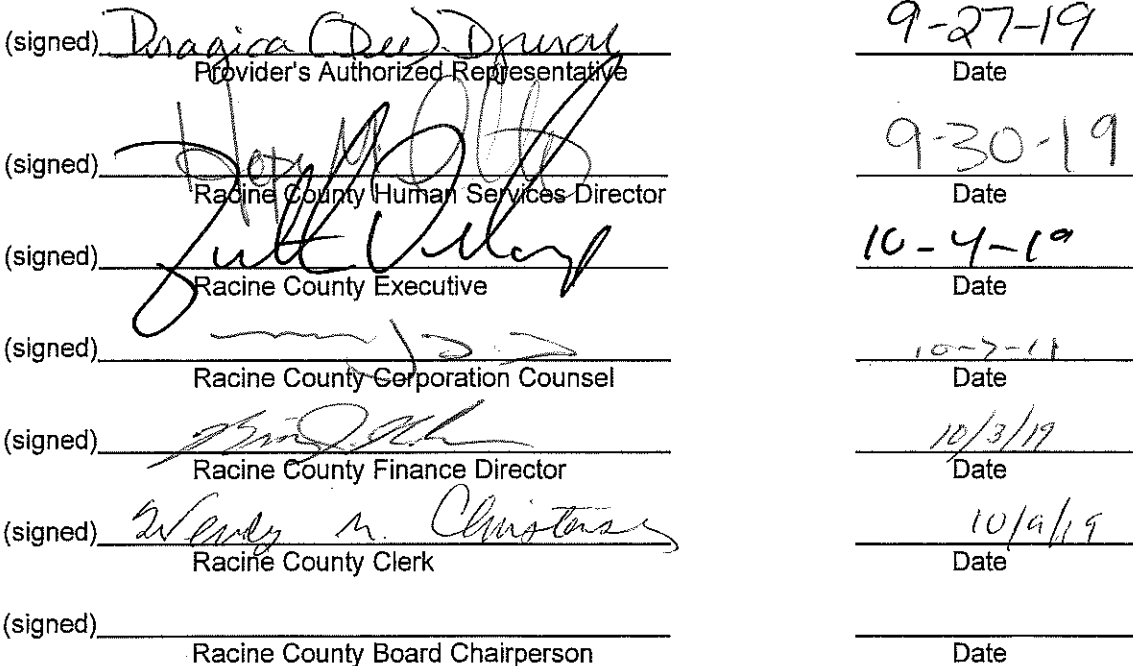 (signed) Dragica (Dee) 9-27-19
Provider's Authorized Representative Date
(signed) Hope M. Otto 9-30-19
Racine County Human Services Director Date
(signed) 10-4-19
Racine County Executive Date
(signed)
Racine County Corporation Counsel Date
(signed) 10/3/19
Racine County Finance Director Date
(signed) Wendy M. Christensen 10/9/19
Racine County Clerk Date
(signed)
Racine County Board Chairperson Date